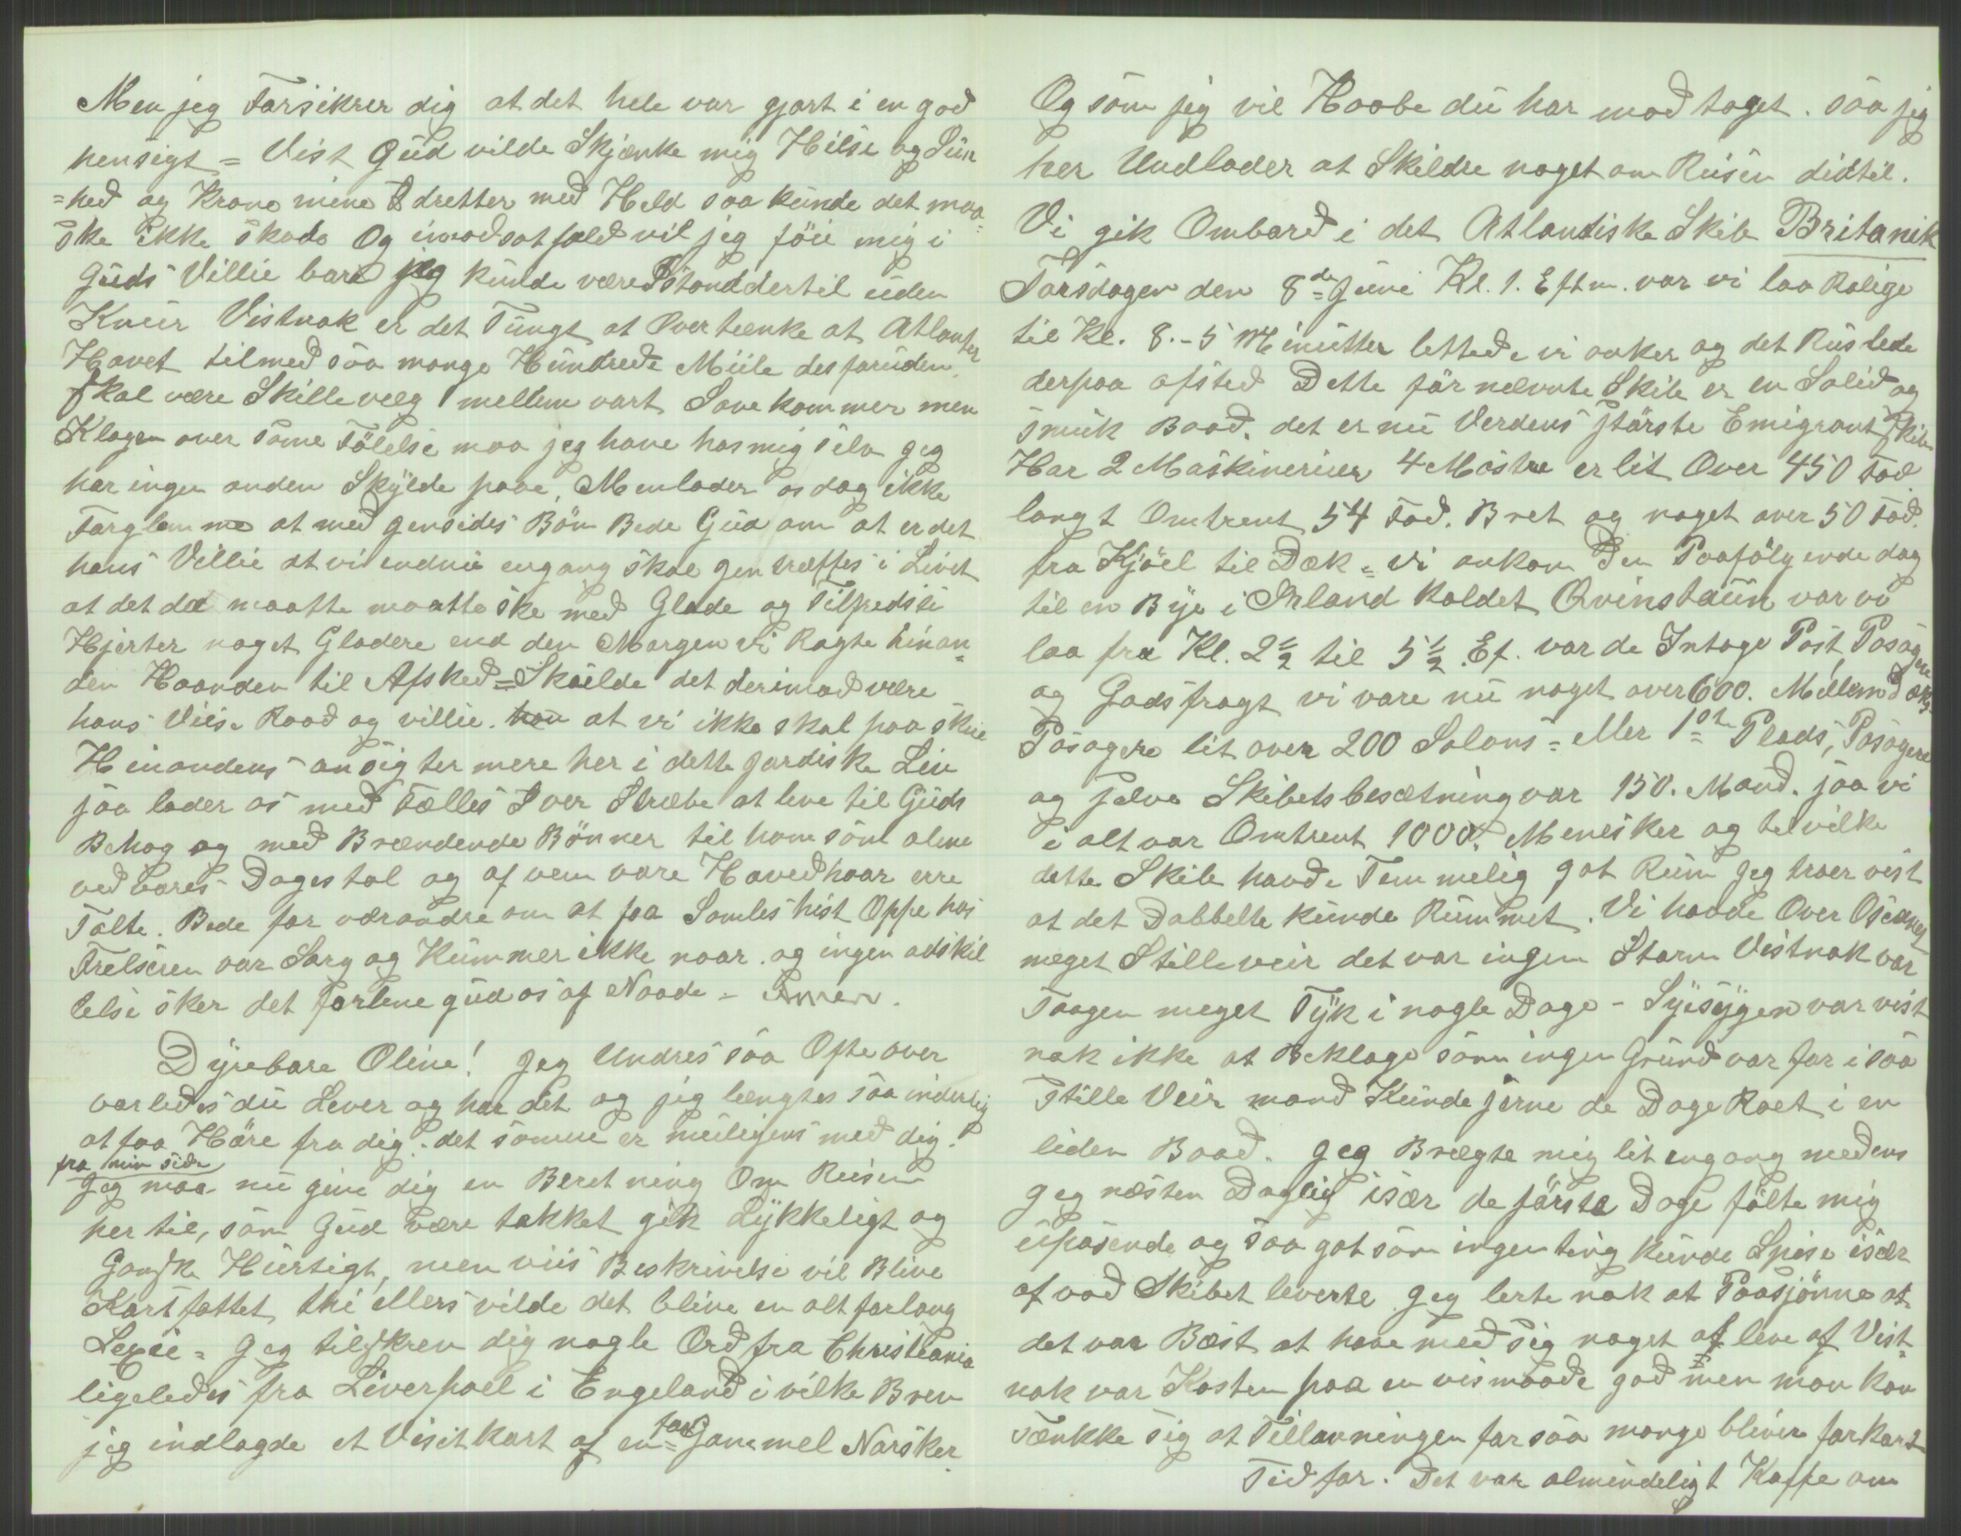 Men jeg Forsikrer dig at det hele var gjort i en god
hensigt = Vist Gud vilde Skjænke mig Hilse og Sün
=hed og Krone mine Idretter med Held saa kunde det maa=
ske ikke skade Og imodsat fald vil jeg föie mig i
Guds Villie bare jeg kunde være Istand dertil uden
Knur Vistnok er det Tungt at Overtænke at Atlanter
Havet tilmed saa mange Hundrede Miile desforuden
skal være Skillevæg mellem vort Sove kommer men
Klagen over såme Fölelse maa jeg have hos mig selv jeg
har ingen anden Skÿlde paae, Men lader os dog ikke
Forglemme at med gensides Bön Bede Gud om at er det
hans Villie at vi endnu engang skal gentræffes i Livet
at det da maatte maatte ske med Glade og Tilfredse
Hjerter noget Gladere end den Morgen vi Ragte hinan=
den Haanden til Afsked = Skulde det derimod være
hans Viise Raad og villie. han at vi ikke skal paa skue
Hinandens ansigter mere her i dette Jordiske Liv
saa lader os med Fælles Iver Stræbe at leve til Guds
Behag og med Brændende Bönner til ham som alene
ved vores Dages tal og af vem vore Hovedhaar erre
Talte. Bede forværandre om at faa Samles hist Oppe hos
Frelseren vor Sorg og Kummer ikke naar. og ingen adskil
lelse sker det forlene gud os af Naade - Amen.
Dÿrebare Oline! Jeg Undres saa Ofte over
vorledes du Lever og har det og jeg længtes saa inderlig
at faa Höre fra dig. det somme er muligens med dig.
fra min side
Jeg maa nu give dig en Beretning Om Reisen
her til, som Gud være takket gik Lÿkkeligt og
Gandske Hurtigt, men viis Beskrivelse vil Blive
Kortfattet, thi ellers vilde det blive en alt forlang
Lexie = Jeg tilskrev dig nogle Ord fra Christiania
ligeledes fra Liverpoel i Engeland i vilke Brev
jeg indlagde et Visitkart af en Gammel Norsker
Og som jeg vil Haabe du har modtaget. saa jeg
her Undlader at Skildre noget om Reisen didtil.
Vi gik Ombord i det Atlantiske Skib Britanik
Torsdagen den 8de Juni Kl. 1. Eftm. vor vi laa Rolige
til Kl. 8. - 5 Minutter lettede vi anker og det Ruslede
derpaa afsted Dette för nævnte Skib er en Solid og
smuk Baad. det er nu Verdens störste Emigrant Skib
Har 2 Maskinerier 4 Mastre er lit Over 450 Fod
langt Omtrent 54 Fod. Bret og noget over 50 Fod.
fra Kjöel til Dæk = vi ankom Den Paafölgende dag
til en Bÿe i Irland kaldet Qvinstaun vor vi
laa fra Kl. 2½ til 5½ Ef. vor de Intoge Post, Pasagere
og Gods fragt vi vare nu noget over 600. Mellem Dæks
Pasagere lit over 200 Salons = eller 1ste Plads, Pasagere
og selve Skibetsbesætning var 150. Mand. saa vi
i alt var Omtrent 1000. Menesker og til vilke
dette Skib havde Temmelig got Rum jeg troer vist
at det Dobbelte kunde Rummet. Vi havde Over Oseanet
meget Stilleveir det var ingen Storm Vistnok var
Taagen meget Tÿk i nogle Dage - Sÿesÿgen var vist
nok ikke at Beklage som ingen Grund var for i saa
Stille Veir mand Kunde jerne de Dage Roet i en
liden Baad. Jeg Brægte mig lit engang medens
jeg næsten Daglig især de förste Dage fölte mig
upasende og saa got som ingenting kunde Spise især
af vad Skibet leverte jeg lerte nok at Paasjönne at
det var Bæst at have med sig noget af leve af Vist=
nok var Kosten paa en vis maade god men man kan
Tænkke sig at Tillavningen for saa mange bliver forkort
Tid for. Det var almindeligt Kaffe om